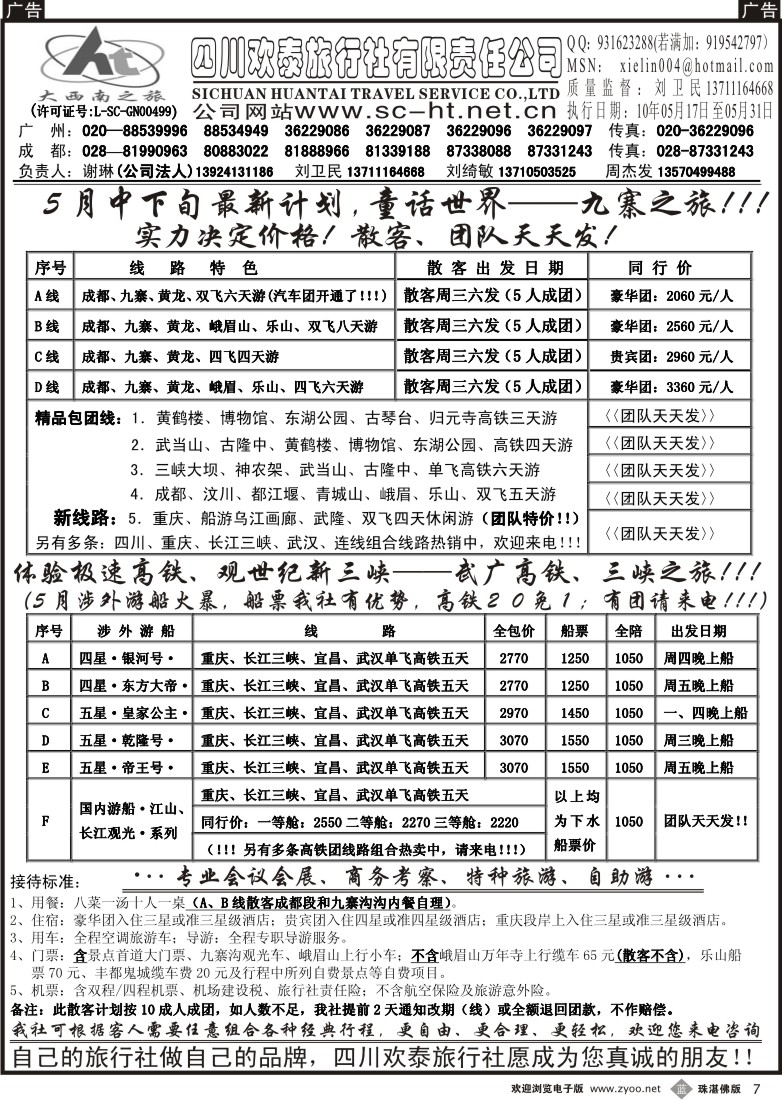 广告
广告
ht
大西南之旅
(许可证号:L-SC-GN00499)
四川欢泰旅行社有限责任公司
SICHUAN HUANTAI TRAVEL SERVICE CO.,LTD
公司网站www.sc-ht.net.cn
QQ: 931623288(若满加: 919542797)
MSN: xielin004@hotmail.com
质量监督: 刘卫民13711164668
执行日期: 10年05月17日至05月31日
广 州: 020—88539996 88534949 36229086 36229087 36229096 36229097 传真: 020-36229096
成 都: 028—81990963 80883022 81888966 81339188 87338088 87331243 传真: 028-87331243
负责人: 谢琳(公司法人)13924131186 刘卫民 13711164668 刘绮敏 13710503525 周杰发 13570499488
5月中下旬最新计划,童话世界——九寨之旅!!!
实力决定价格! 散客、团队天天发!
序号 线 路 特 色 散客出发日期 同行价
A线 成都、九寨、黄龙、双飞六天游(汽车团开通了!!!) 散客周三六发(5人成团) 豪华团: 2060元/人
B线 成都、九寨、黄龙、峨眉山、乐山、双飞八天游 散客周三六发(5人成团) 豪华团: 2560元/人
C线 成都、九寨、黄龙、四飞四天游 散客周三六发(5人成团) 贵宾团: 2960元/人
D线 成都、九寨、黄龙、峨眉、乐山、四飞六天游 散客周三六发(5人成团) 豪华团: 3360元/人
精品包团线: 1. 黄鹤楼、博物馆、东湖公园、古琴台、归元寺高铁三天游 〈〈团队天天发〉〉
2. 武当山、古隆中、黄鹤楼、博物馆、东湖公园、高铁四天游 〈〈团队天天发〉〉
3. 三峡大坝、神农架、武当山、古隆中、单飞高铁六天游 〈〈团队天天发〉〉
4. 成都、汶川、都江堰、青城山、峨眉、乐山、双飞五天游 〈〈团队天天发〉〉
新线路: 5. 重庆、船游乌江画廊、武隆、双飞四天休闲游(团队特价!!) 〈〈团队天天发〉〉
另有多条: 四川、重庆、长江三峡、武汉、连线组合线路热销中, 欢迎来电!!!
体验极速高铁、观世纪新三峡——武广高铁、三峡之旅!!!
(5月涉外游船火暴,船票我社有优势,高铁20免1;有团请来电!!!)
序号 涉外游船 线 路 全包价 船票 全陪 出发日期
A 四星·银河号· 重庆、长江三峡、宜昌、武汉单飞高铁五天 2770 1250 1050 周四晚上船
B 四星·东方大帝· 重庆、长江三峡、宜昌、武汉单飞高铁五天 2770 1250 1050 周五晚上船
C 五星·皇家公主· 重庆、长江三峡、宜昌、武汉单飞高铁五天 2970 1450 1050 一、四晚上船
D 五星·乾隆号· 重庆、长江三峡、宜昌、武汉单飞高铁五天 3070 1550 1050 周三晚上船
E 五星·帝王号· 重庆、长江三峡、宜昌、武汉单飞高铁五天 3070 1550 1050 周五晚上船
F 国内游船·江山、长江观光·系列 重庆、长江三峡、宜昌、武汉单飞高铁五天 以上均为下水船票价 1050 团队天天发!!
同行价: 一等舱: 2550 二等舱: 2270 三等舱: 2220
(!!! 另有多条高铁团线路组合热卖中, 请来电!!!)
接待标准: ···专业会议会展、商务考察、特种旅游、自助游···
1、用餐: 八菜一汤十人一桌(A、B线散客成都段和九寨沟沟内餐自理)。
2、住宿: 豪华团入住三星或准三星级酒店; 贵宾团入住四星或准四星级酒店; 重庆段岸上入住三星或准三星级酒店。
3、用车: 全程空调旅游车; 导游: 全程专职导游服务。
4、门票: 含景点首道大门票、九寨沟观光车、峨眉山上行小车; 不含峨眉山万年寺上行缆车65元(散客不含), 乐山船
票70元、丰都鬼城缆车费20元及行程中所列自费景点等自费项目。
5、机票: 含双程/四程机票、机场建设税、旅行社责任险; 不含航空保险及旅游意外险。
备注: 此散客计划按10成人成团, 如人数不足, 我社提前2天通知改期(线)或全额退回团款, 不作赔偿。
我社可根据客人需要任意组合各种经典行程, 更自由、更合理、更轻松, 欢迎您来电咨询
自己的旅行社做自己的品牌, 四川欢泰旅行社愿成为您真诚的朋友!!
欢迎浏览电子版 www.zyoo.net 蓝 珠湛佛版 7